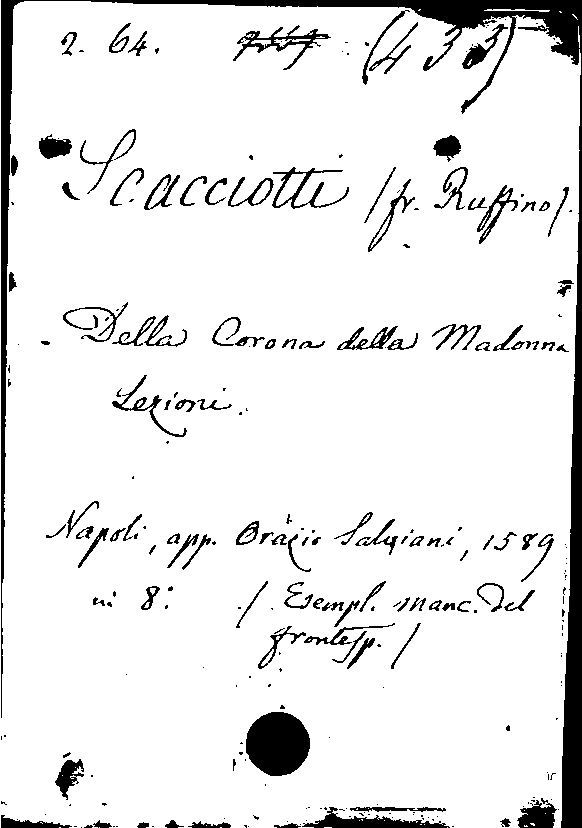 2. 64. (433)
Scacciotti (fr. Ruffino).
Della Corona della Madonna
Lezioni.
Napoli, app. Orazio Salviani, 1589
in 8: (Esempl. manc. del
frontesp.)